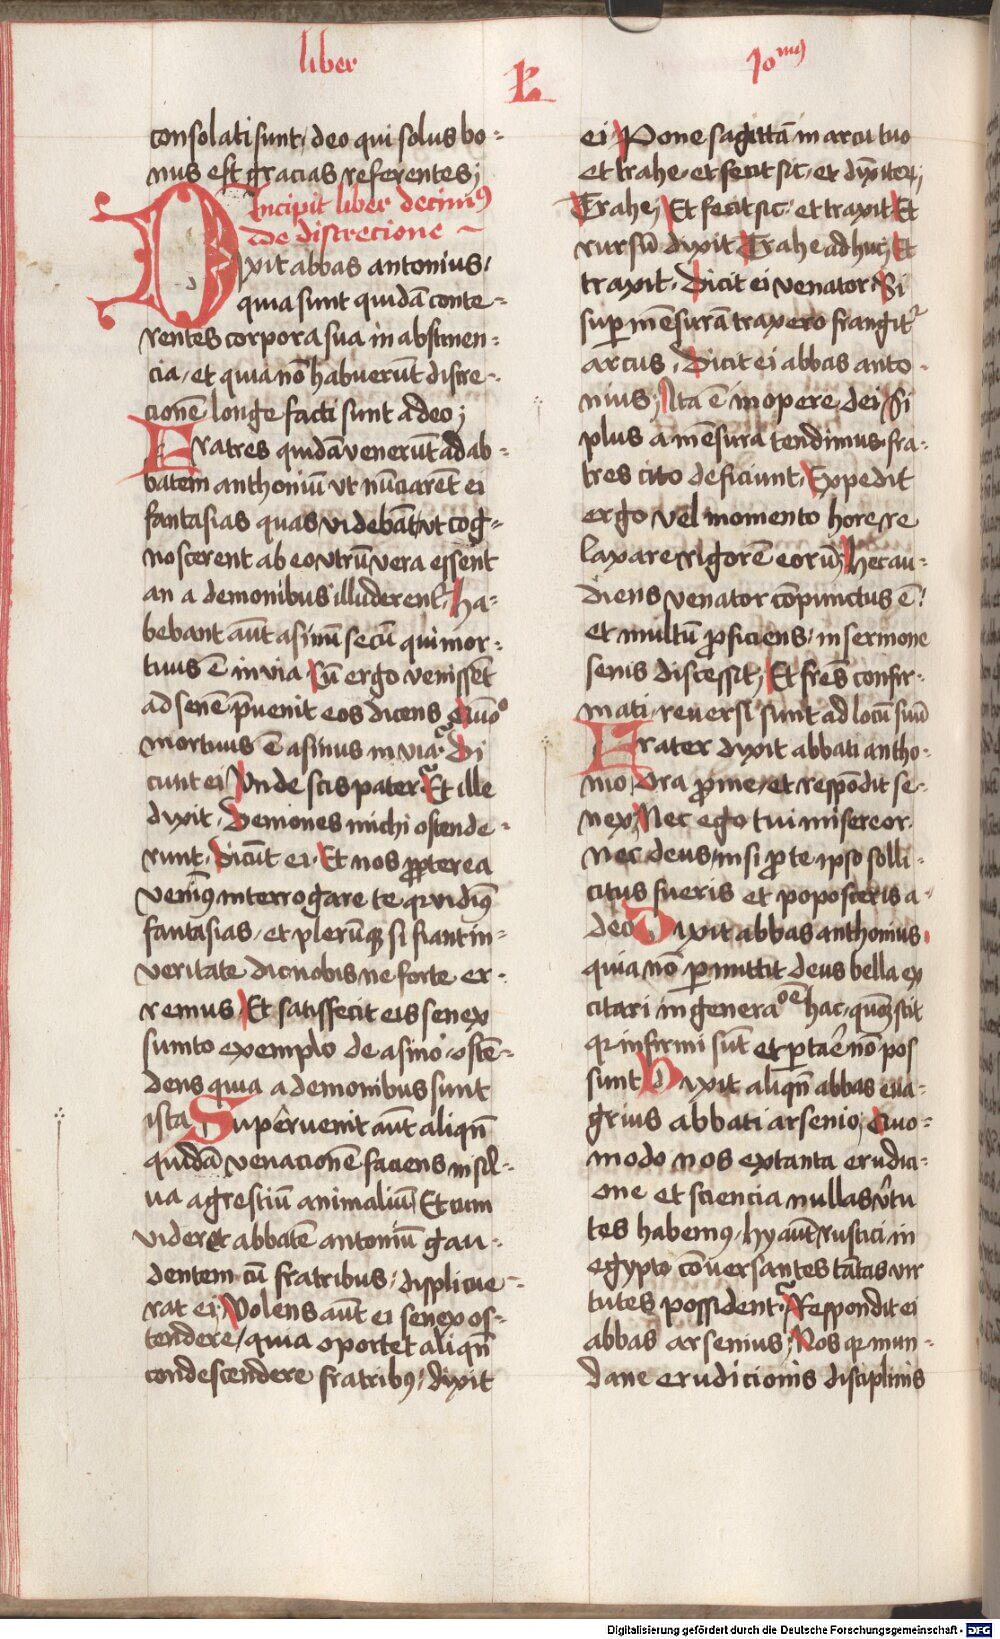 liber
10mus
consolati sunt, deo qui solus bo-
nus est gracias referentes;
Incipit liber decimꝰ
de discrecione
Dixit abbas antonius,
quia sunt quidā conte-
rentes corpora sua in abstinen-
cia, et quia nō habuerūt discre-
cionē longe facti sunt a deo;
Fratres quidā venerūt ad ab-
batem anthoniū vt nūciarēt ei
fantasias quas videbāt, vt cog-
noscerent ab eo vtrū vera essent
an a demonibus illuderent. Ha-
bebant aūt asinū secū qui mor-
tuus ē in via. Cū ergo venissēt
ad senē p̄uenit eos dicens Quo
mortuus ē asinus in via. Di
cunt ei Vnde scis pater. Et ille
dixit. Demones michi ostende-
runt. Dicūt ei. Et nos ꝓpterea
venimꝰ interrogare te qꝛ vidimꝰ
fantasias, et plerūqꝫ si fiant in
veritate dic nobis ne forte er-
remus. Et satisfecit eis senex
sumto exemplo de asino ostē-
dens quia a demonibus sunt
ista Superuenit aūt aliqn̄
quidā venacionē faciens in sil-
ua agrestiū animaliū. Et cum
videret abbatē antoniū gau-
dentem cū fratribus, displicue-
rat ei. Volens aūt ei senex os-
tendere, quia oportet aliqn̄
condescendere fratribꝰ, dixit
ei Pone sagittā in arcu tuo
et trahe, et fecit sic, et dixit ei;
Trahe; Et fecit sic, et traxit Et
rursū dixit Trahe adhuc; Et
traxit. Dicit ei venator Si
suꝑ mēsurā traxero frangitur
arcus. Dicit ei abbas anto-
nius; Ita ē in opere dei Si
plus a mēsura tendimus fra-
tres cito deficiunt, Expedit
ergo vel momento hore re
laxare rigorē eorū; Hec au-
diens venator cōpunctus ē,
et multū ꝓficiens, in sermone
senis discessit; Et frēs confir-
mati reuersi sunt ad locū suū
Frater dixit abbati antho-
nio, Ora ꝓ me, et respōdit se-
nex; Nec ego tui misereor.
nec deus, nisi ꝓ te ipso solli-
citus fueris et poposceris a
deo Dixit abbas anthonius
quia nō ꝑmittit deus bella ex
citari in generaoē hac, quoꝫ scit
qꝛ infirmi sūt et portare nō pos
sunt Dixit aliqn̄ abbas eua-
grius abbati arsenio; Quo-
modo nos ex tanta erudici-
one et sciencia nullas v̄tu
tes habemꝰ, hy aūt rustici in
egypto cōuersantes tātas vir
tutes possident. Respondit ei
abbas arsenius; Nos qꝛ mun-
dane erudicionis disciplinis
Digitalisierung gefördert durch die Deutsche Forschungsgemeinschaft - DFG